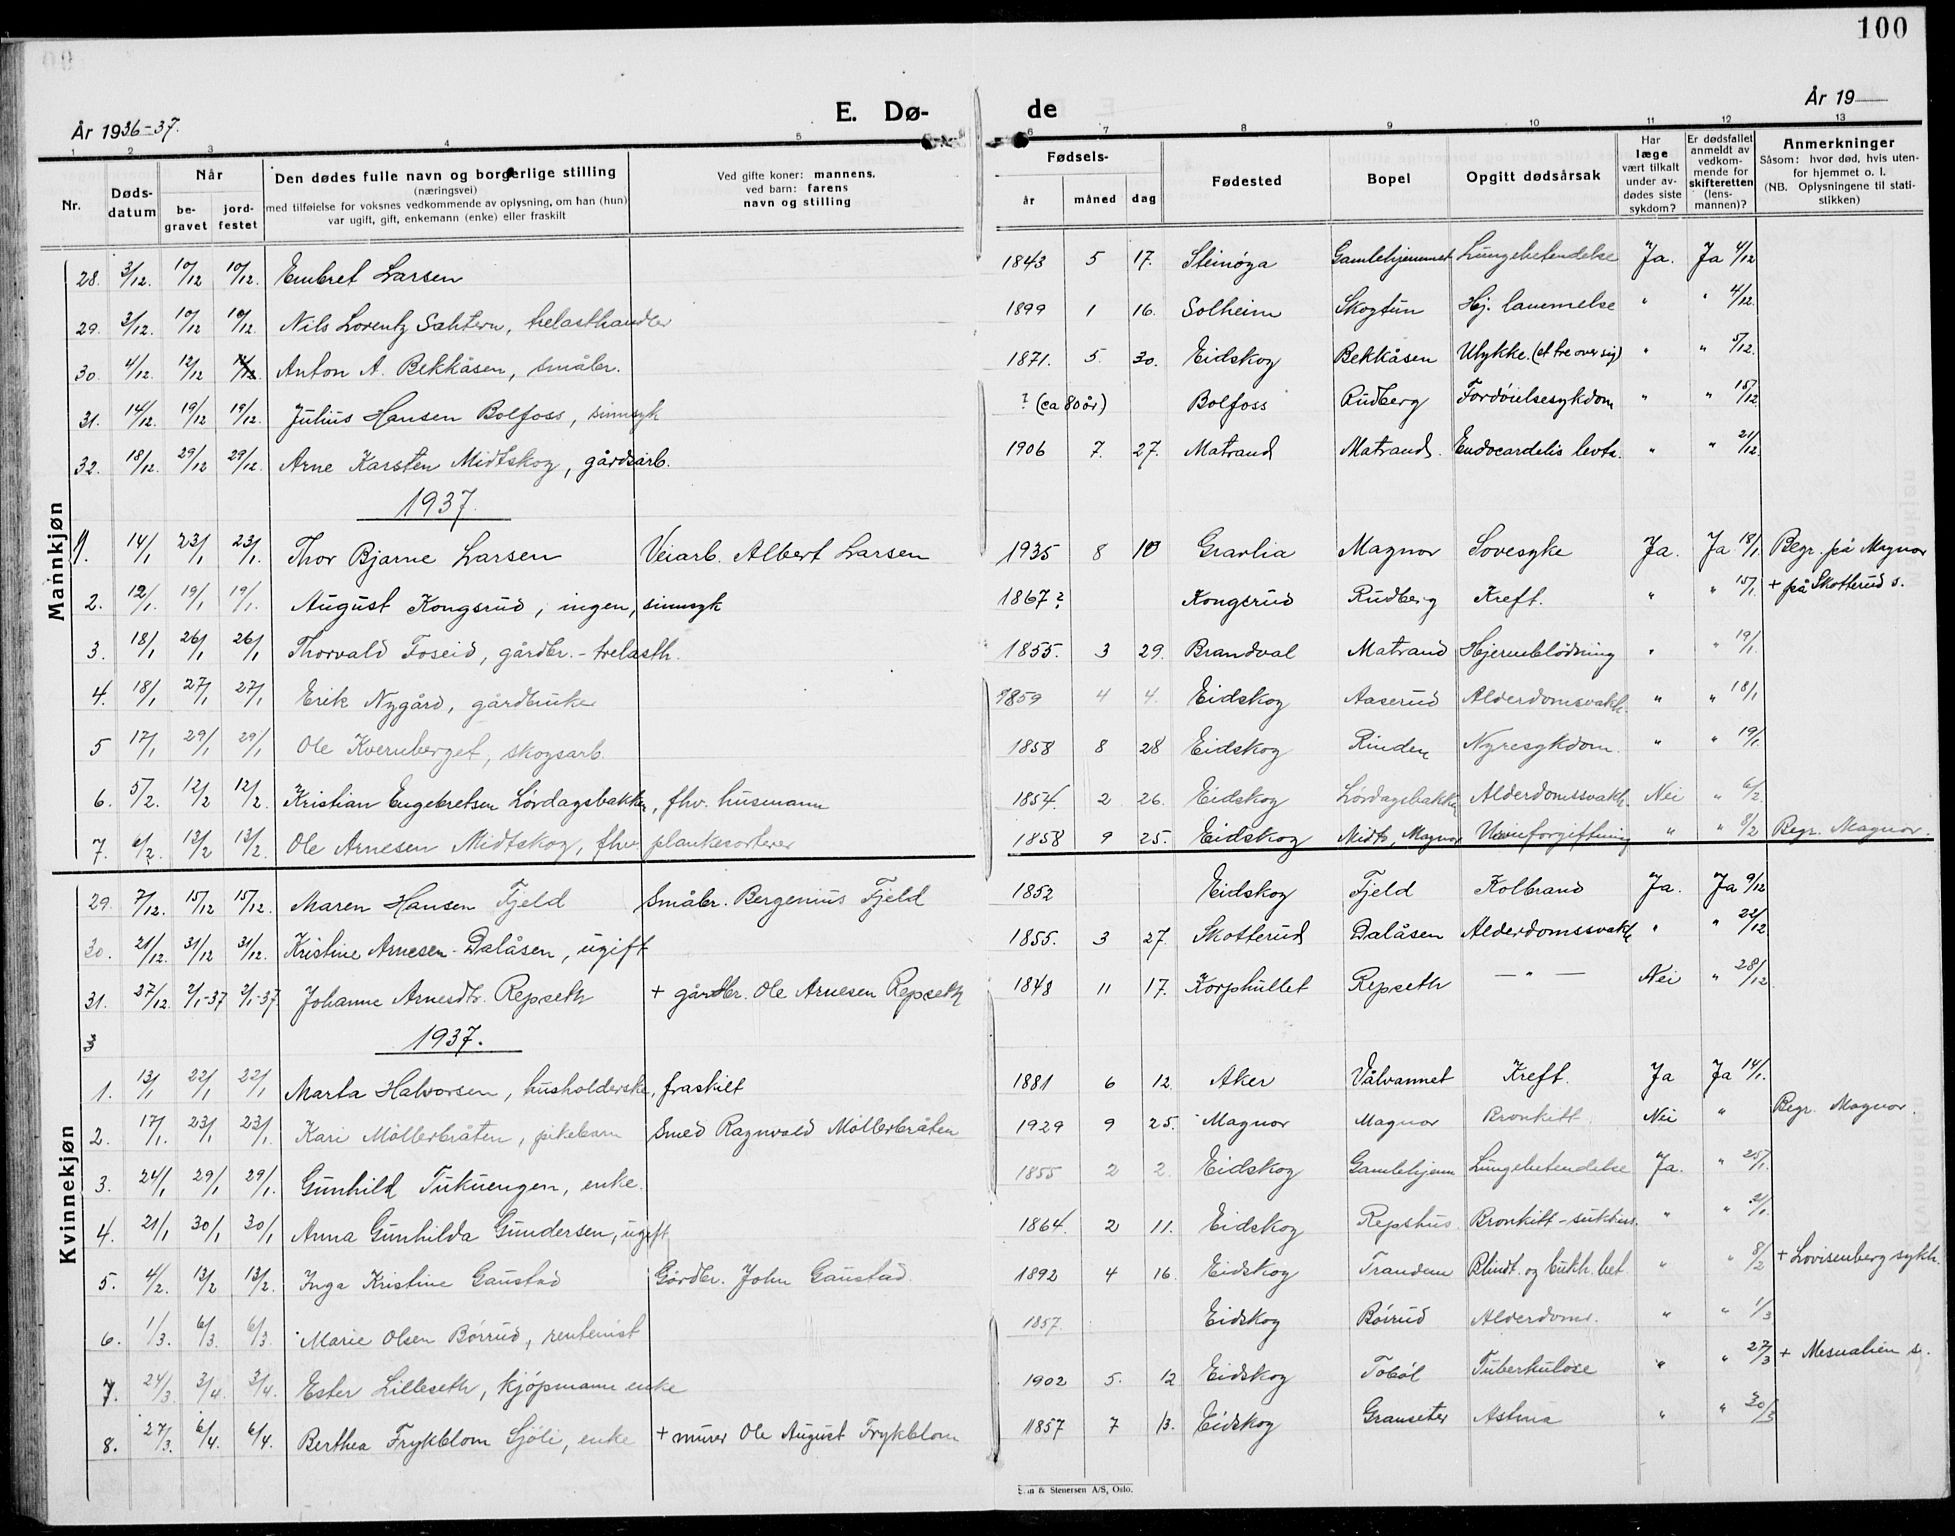 100
År 1936-37. E. Dø- de År 19
1 2 3 4 5 6 7 8 9 10 11 12 13
Nr. Døds-datum Når be-gravet jord-festet Den dødes fulle navn og borgerlige stilling (næringsvei) med tilføielse for voksnes vedkommende av oplysning, om han (hun) var ugift, gift, enkemann (enke) eller fraskilt Ved gifte koner: mannens, ved barn: farens navn og stilling Fødsels- år måned dag Fødested Bopel Opgitt dødsårsak Har læge vært tilkalt under av-dødes siste sykdom? Er dødsfallet anmeldt av vedkom-mende for skifteretten (lens-mannen)? Anmerkninger Såsom: hvor død, hvis uten-for hjemmet o. l. (NB. Oplysningene til stati-stikken)
Mannkjøn
28. 3/12. 10/12 10/12. Embret Larsen 1843 5 17. Steinøga Gamlehjemmet Lungebetendelse Ja. Ja 4/12
29. 3/12. 10/12 10/12. Nils Lorentz Sahtern, trelasthandler 1899 1 16. Solheim Skogtun Hj. lammelse " " 4/12.
30. 4/12. 12/12 12/12. Anton A. Bekkåsen, småbr. 1871. 5. 30. Eidskog Bekkåsen Ulykke. (et tre over sig) " " 5/12.
31. 14/12. 19/12 19/12. Julius Hansen Bolfoss, sinnsyk ? (ca 80 år) Bolfoss Rudberg Fordøielsesykdom " " 15/12.
32. 18/12. 29/12 29/12. Arne Karsten Midtskog, gårdsarb. 1906 7. 27. Matrand Matrand. Endocardelis levta. " " 21/12.
1937.
1. 14/1 23/1 23/1. Thor Bjarne Larsen Veiarb. Albert Larsen 1935 8 10 Gravlia Magnor Sovesyke Ja. Ja 18/1. Begr. på Magnor
2. 12/1. 19/1 19/1. August Kongsrud, ingen, sinnsyk 1867? Kongsrud Rudberg Kreft. " " 15/1. + på Skotterud s.
3. 18/1 26/1 26/1. Thorvald Foseid, gårdbr. - trelasth. 1855. 3 29. Brandval Matrand Hjerneblødning " " 19/1.
4. 18/1 27/1 27/1 Erik Nygård, gårdbruker 1859 4 4. Eidskog Aaserud Alderdomsvakh. " " 18/1
5 17/1 29/1 29/1 Ole Kvernberget, skogsarb. 1858 8 28 Eidskog Rinden Nyresykdom. " " 19/1.
6. 5/2. 12/2 12/2. Kristian Engebretsen Lørdagsbakken, fhv. husmann 1854. 2 26. Eidskog Lørdagsbakken Alderdomssvakh. Nei " 6/2.
7. 6/2. 13/2 13/2. Ole Arnesen Midtskog, fhv. plankesorterer 1858 9 25. Eidskog Midts, Magnor Urinforgiftning " " 8/2 Begr. Magnor.
Kvinnekjøn
29. 7/12. 15/12 15/12. Maren Hansen Fjeld Småbr. Bergenius Fjeld 1852 Eidskog Fjeld Kolbrand Ja. Ja 9/12
30. 21/12. 31/12 31/12. Kristine Arnesen-Dalåsen, ugift 1855. 3 27. Skotterud Dalåsen Alderdomssvakh. " " 22/12
31. 27/12. 2/1-37 2/1-37 Johanne Arnesdtr. Repseth + gårdbr. Ole Arnesen Repseth 1848 11 17. Korphullet Repseth — " — Nei " 28/12
3 1937.
1. 13/1 22/1 22/1. Marta Halvorsen, husholderske, fraskilt 1881 6 12. Aker Vålvannet Kreft. Ja Ja 14/1.
2. 17/1. 23/1 23/1. Kari Møllerbråten, pikebarn Smed Ragnvald Møllerbråten 1929 9 25. Magnor Magnor Bronkitt Nei " Begr. Magnor.
3. 24/1 29/1 29/1. Gunhild Tukuengen, enke. 1855 2 2. Eidskog Gamlehjem Lungebetendelse Ja. " 25/1.
4. 21/1 30/1 30/1 Anna Gunhilda Gundersen, ugift 1864. 2 11. Eidskog Repshus Bronkitt- " "
5. 4/2. 13/2 13/2. Inga Kristine Gaustad Gårdbr. John Gaustad. 1892 4 16. Eidskog Trandem Blindt. og bukh. bet. " " 8/2 + Lovisenberg sykh.
6. 1/3. 6/3 6/3 Marie Olsen Børrud, rentenist 1857. Eidskog Børrud Alderdoms. " " 1/3
7. 24/3 3/4. 3/4. Ester Lilleseth, kjøpmann enke 1902 5. 12 Eidskog Tobøl Tuberkulose " " 27/3 + Mesnalien s.
8. 27/3. 6/4. 6/4. Berthea Frykblom Sjøli, enke + murer Ole August Frykblom 1857 7 13. Eidskog Granseter Astma " " 30/3
& Stenersen A/S, Oslo.